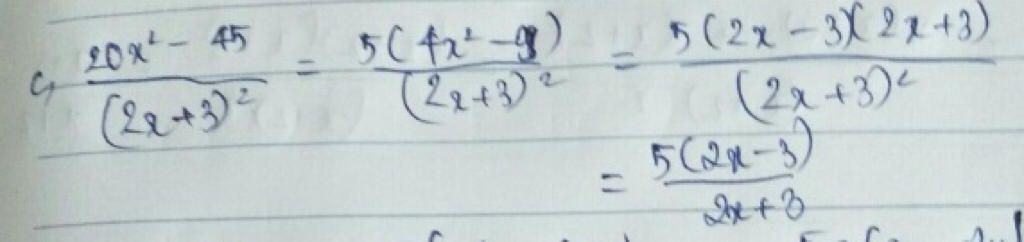 c, (20x² - 45)/(2x+3)² = 5(4x² - 9)/(2x+3)² = 5(2x - 3)(2x+3)/(2x+3)²
= 5(2x-3)/2x+3